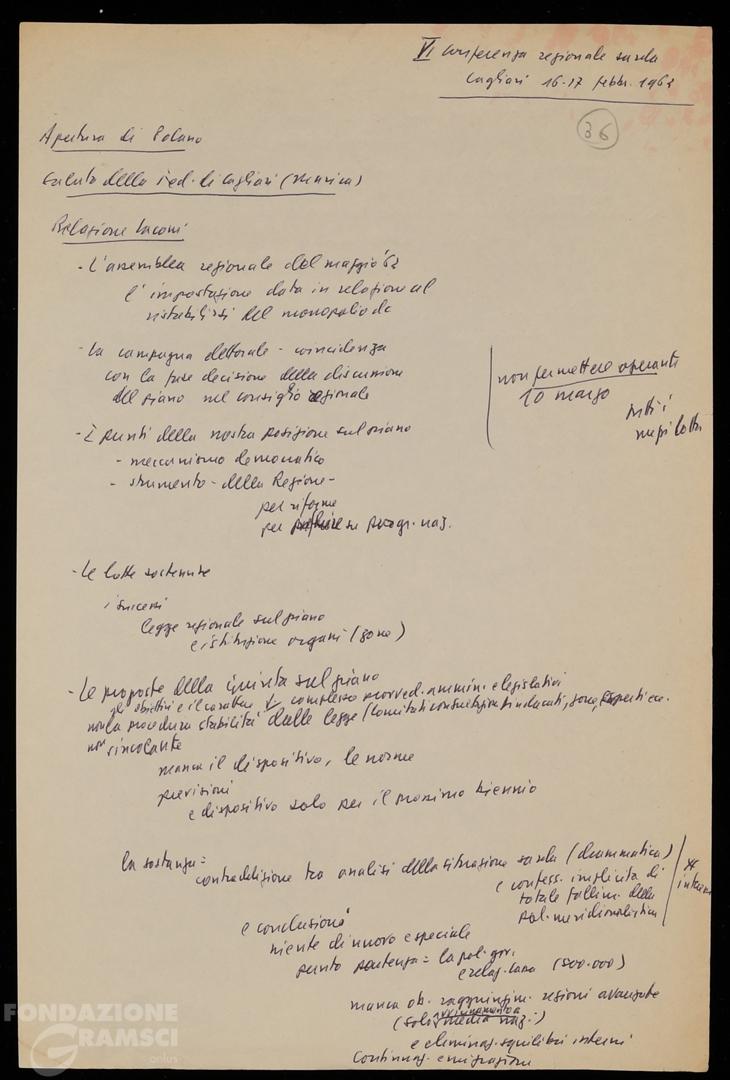 VI conferenza regionale sarda
Cagliari 16-17 febbr. 1963
36
Apertura di Polano
Saluto della Fed. di Cagliari (Marica)
Relazione Laconi
- L'assemblea regionale del maggio '62
l'impostazione data in relazione al
ristabilirsi del monopolio dc
- La campagna elettorale - coincidenza
con la fase decisiva della discussione
del piano nel consiglio regionale
non permettere operanti
10 marzo
tutti i
- I punti della nostra posizione sul piano
- meccanismo democratico
- strumento - della Regione -
per riforme
per su progr. naz.
- Le lotte sostenute
i successi
legge regionale sul piano
e istituzione organi (zone)
- Le proposte della Giunta sul piano
gli obiettivi e il carattere complesso provved. ammin. e legislativi
non la procedura stabilità dalle legge (Comitati consultazione sindacati, zone, esperti ecc.
non vincolante
manca il dispositivo, le norme
previsioni
e dispositivo solo per il prossimo biennio
la sostanza =
contraddizione tra analisi della situazione sarda (drammatica)
e confess. implicita di
totale fallim. della
pol. meridionalistica
e conclusione
niente di nuovo e speciale
punto partenza = la pol. gov.
e relaz. (800.000)
manca ob. raggiungim. regioni avanzate
(solo avvicinamento a media naz.)
e eliminaz. squilibri interni
continuaz. emigrazione
FONDAZIONE
GRAMSCI
onlus